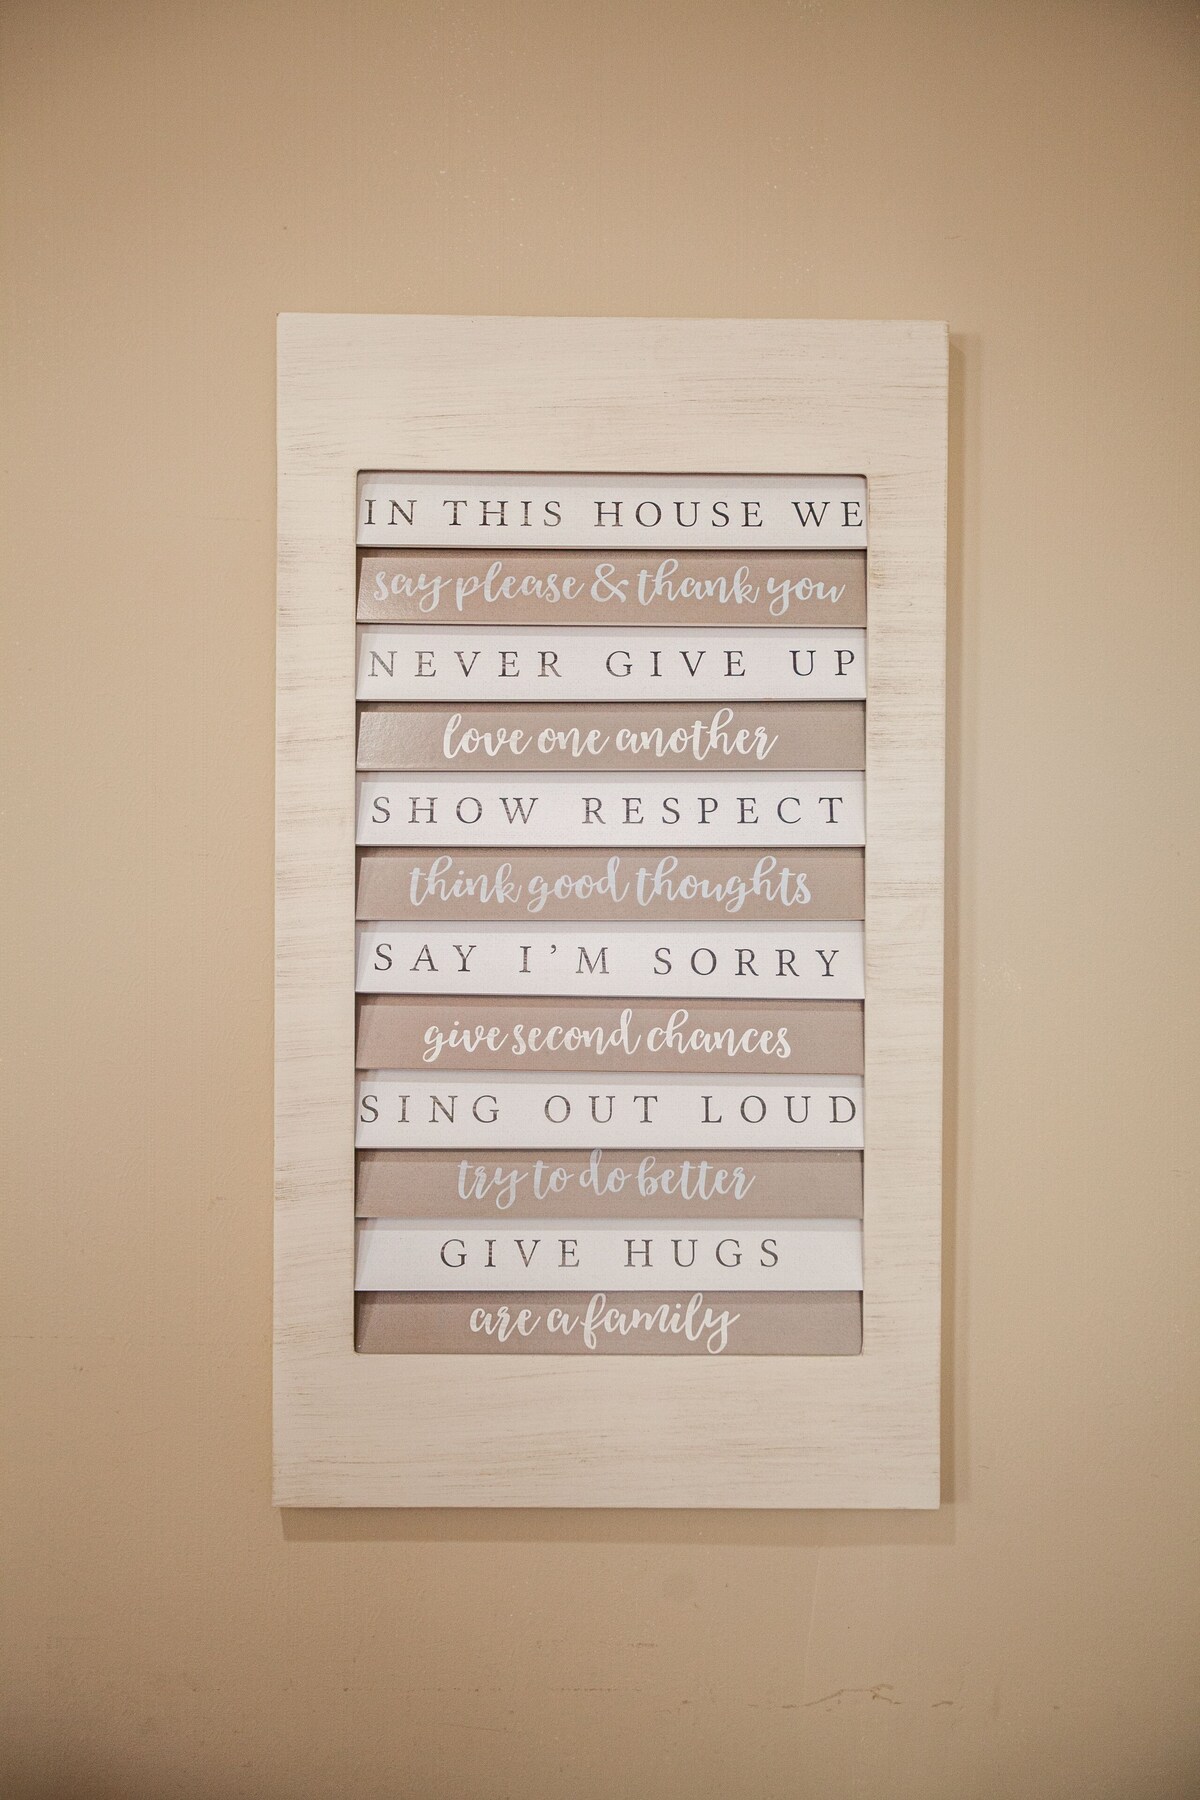 IN THIS HOUSE WE
say please & thank you
NEVER GIVE UP
love one another
SHOW RESPECT
think good thoughts
SAY I'M SORRY
give second chances
SING OUT LOUD
try to do better
GIVE HUGS
are a family